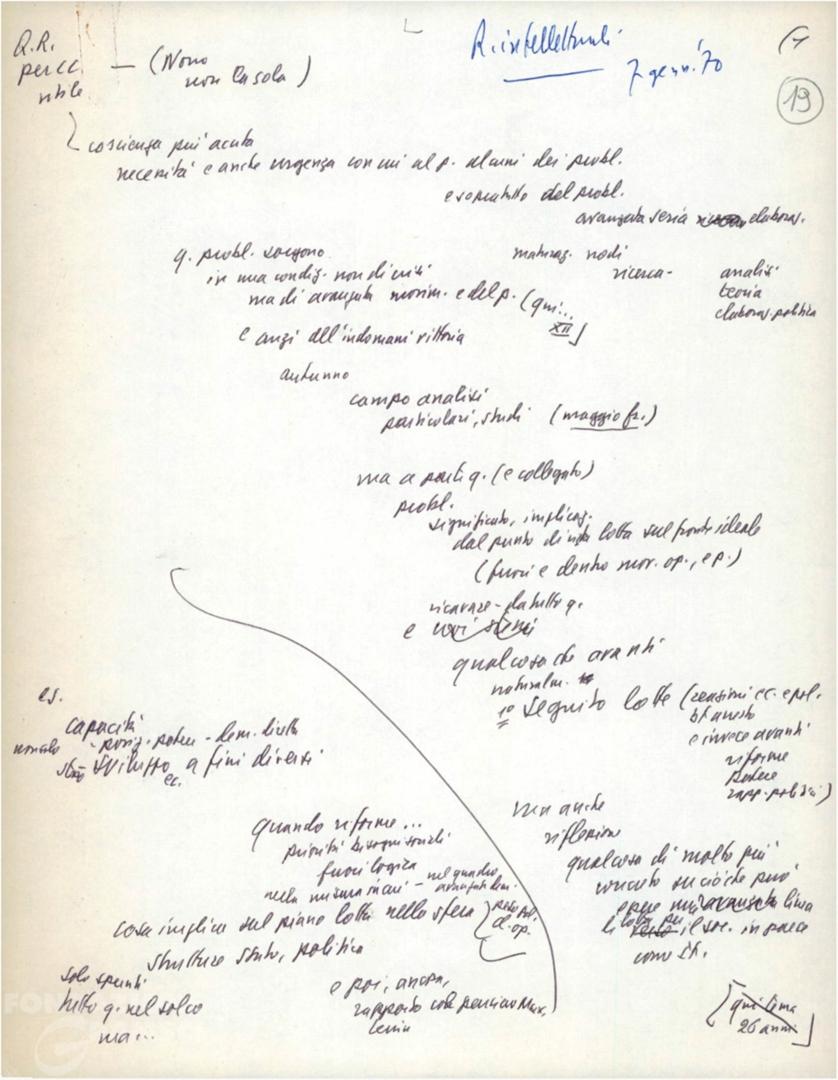 R. intellettuali
7 genn. '70
19
Q.R.
— (Nono
non la sola)
coscienza più acuta
necessità e anche urgenza con cui al p. alcuni dei probl.
e sopratutto del probl.
avanzata seria elaboraz.
q. probl. sorgono
maturaz. nodi
in una condiz. non di crisi
ricerca - analisi
ma di avanzata movim. e del p. (qui...
teoria
XII]
elaboraz. politica
e anzi all'indomani vittoria
autunno
campo analisi
particolari, studi (maggio fr.)
ma a parte q. (e collegato)
probl.
significato, implicaz.
dal punto di vista lotta sul fronte ideale
(fuori e dentro mov. op., e p.)
ricavare - da tutto q.
e
qualcosa che avanti
naturalm.
1º seguito lotte (reazioni ec. e pol.
e invece avanti
riforme
potere
rapp. politici)
es.
capacità
- poriz. potere - dem. diretta
sviluppo a fini diversi
ec.
ma anche
riflessione
qualcosa di molto più
concreto su ciò che può
essere avanzata linea
il soc. in paese
come It.
quando riforme ...
priorità bisogni sociali
fuori logica
nella misura in cui - nel quadro
avanzati dem.
cosa implica sul piano lotta nella sfera
cl. op.
strutture stato, politica
solo spunti
tutto q. nel solco
ma...
e poi, ancora,
rapporto col pensiero Marx,
Lenin
[qui linea
26 anni]